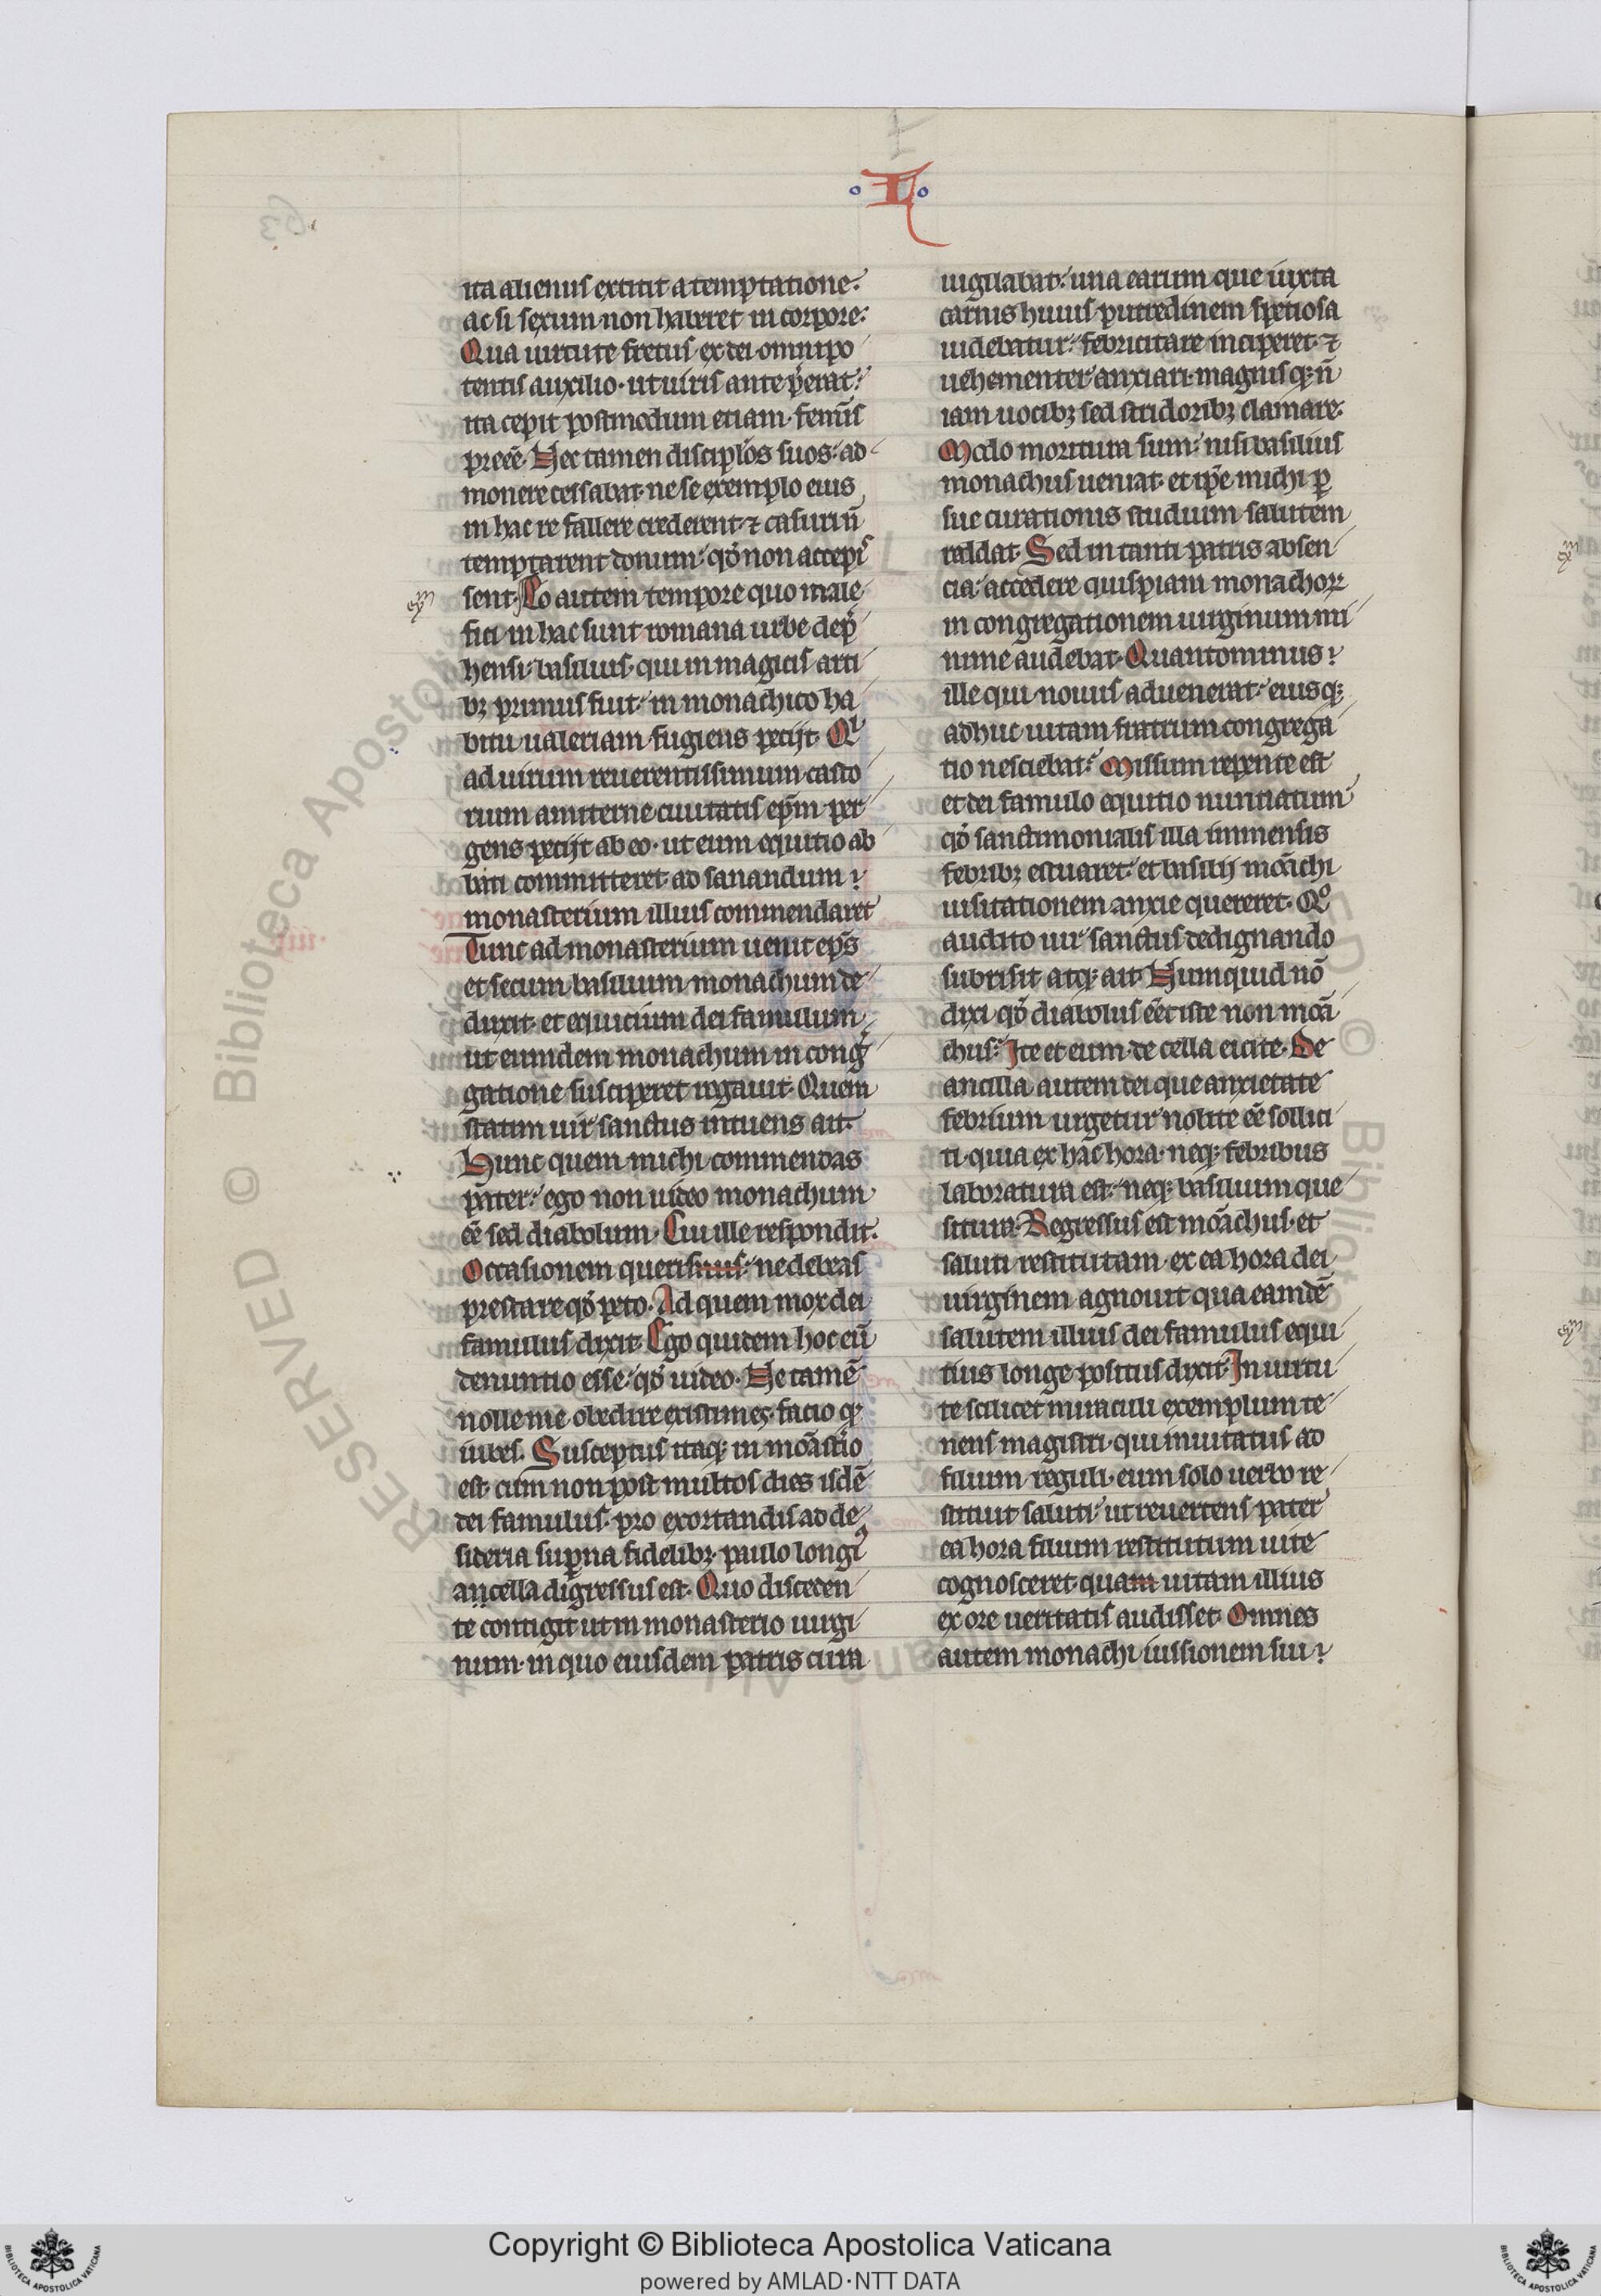 L
ita alienus extitit a temptatione.
ac si sexum non haberet in corpore.
Qua uirtute fretus ex dei omnipo
tentis auxilio. ut uiris ante p̄erat.
ita cepit postmodum etiam feminis
preēē. Nec tamen discipl̄os suos. ad
monere cessabat. ne se exemplo eius
in hac re facile crederent. ⁊ casuri n̄
temptarent donum. qd̄ non accepis
sent. Eo autem tempore quo male
fici in hac sunt romana urbe dep̄
hensi. basilius. qui in magicis arti
bꝫ primus fuit. in monachico ha
bitu ualeriam fugiens petijt. Qͥ
ad uirum reuerentissimum casto
rium amiterne ciuitatis ep̄m per
gens petijt ab eo. ut eum equitio ab
bati committeret. ac sanandum
monasterium illius commendaret
Tunc ad monasterium uenit ep̄s
et secum basilium monachum de
duxit. et equicium dei famulum
ut eumdem monachum in conḡ
gatione susciperet rogauit. Quem
statim uir sanctus intuens ait.
Hunc quem michi commendas
pater. ego non uideo monachum
ēē sed diabolum. Cui ille respondit.
Occasionem queris. ne debeas
prestare qd̄ peto. Ad quem mox dei
famulus dixit. Ego quidem hoc eū
denuntio esse. qd̄ uideo. Ne tamē
nolle me obedire existimes. facio qd̄
iubes. Susceptus itaqꝫ in mōast̄io
est. cum non post multos dies isdē
dei famulus. pro exortandis ad de
sideria sup̄na fidelibꝫ. paulo longiꝰ
a cella digressus est. Quo disceden
te contigit ut in monasterio uirgi
num. in quo eiusdem patris cura
uigilabat. una earum que iuxta
carnis huius putredinem spetiosa
uidebatur. febricitare inciperet. ⁊
uehementer anxiari. magnisqꝫ n̄
iam uocibꝫ sed stridoribꝫ clamare.
Modo moritura sum. nisi basilius
monachus ueniat. et ip̄e michi ꝑ
sue curationis studium salutem
reddat. Sed in tanti patris absen
cia. accedere quispiam monachoꝝ
in congregationem uirginum mi
nime audebat. Quanto minus
ille qui nouus aduenerat. eiusqꝫ
adhuc uitam fratrum congrega
tio nesciebat. Missum repente est
et dei famulo equitio nuntiatum
qd̄ sanctimonialis illa immensis
febribꝫ estuaret. et basilij mōachi
uisitationem anxie quereret. Qͦ
audito uir sanctus dedignando
subrisit atqꝫ ait. Numquid nō
dixi qd̄ diabolus ēēt iste non mōa
chus. Ite et eum de cella eicite. De
ancilla autem dei que anxietate
febrium urgetur nolite ēē sollici
ti. quia ex hac hora. neqꝫ febribus
laboratura est. neqꝫ basilium que
situra. Regressus est mōachus. et
saluti restitutam ex ea hora dei
uirginem agnouit qua eamdē
salutem illius dei famulus equi
tius longe positus dixit. In uirtu
te scilicet miraculi exemplum te
nens magistri. qui inuitatus ad
filium reguli. eum solo uerbo re
stituit saluti. ut reuertens pater
ea hora filium restitutum uite
cognosceret. qua uitam illius
ex ore ueritatis audisset. Omnes
autem monachi iussionem sui
Copyright © Biblioteca Apostolica Vaticana
powered by AMLAD·NTT DATA